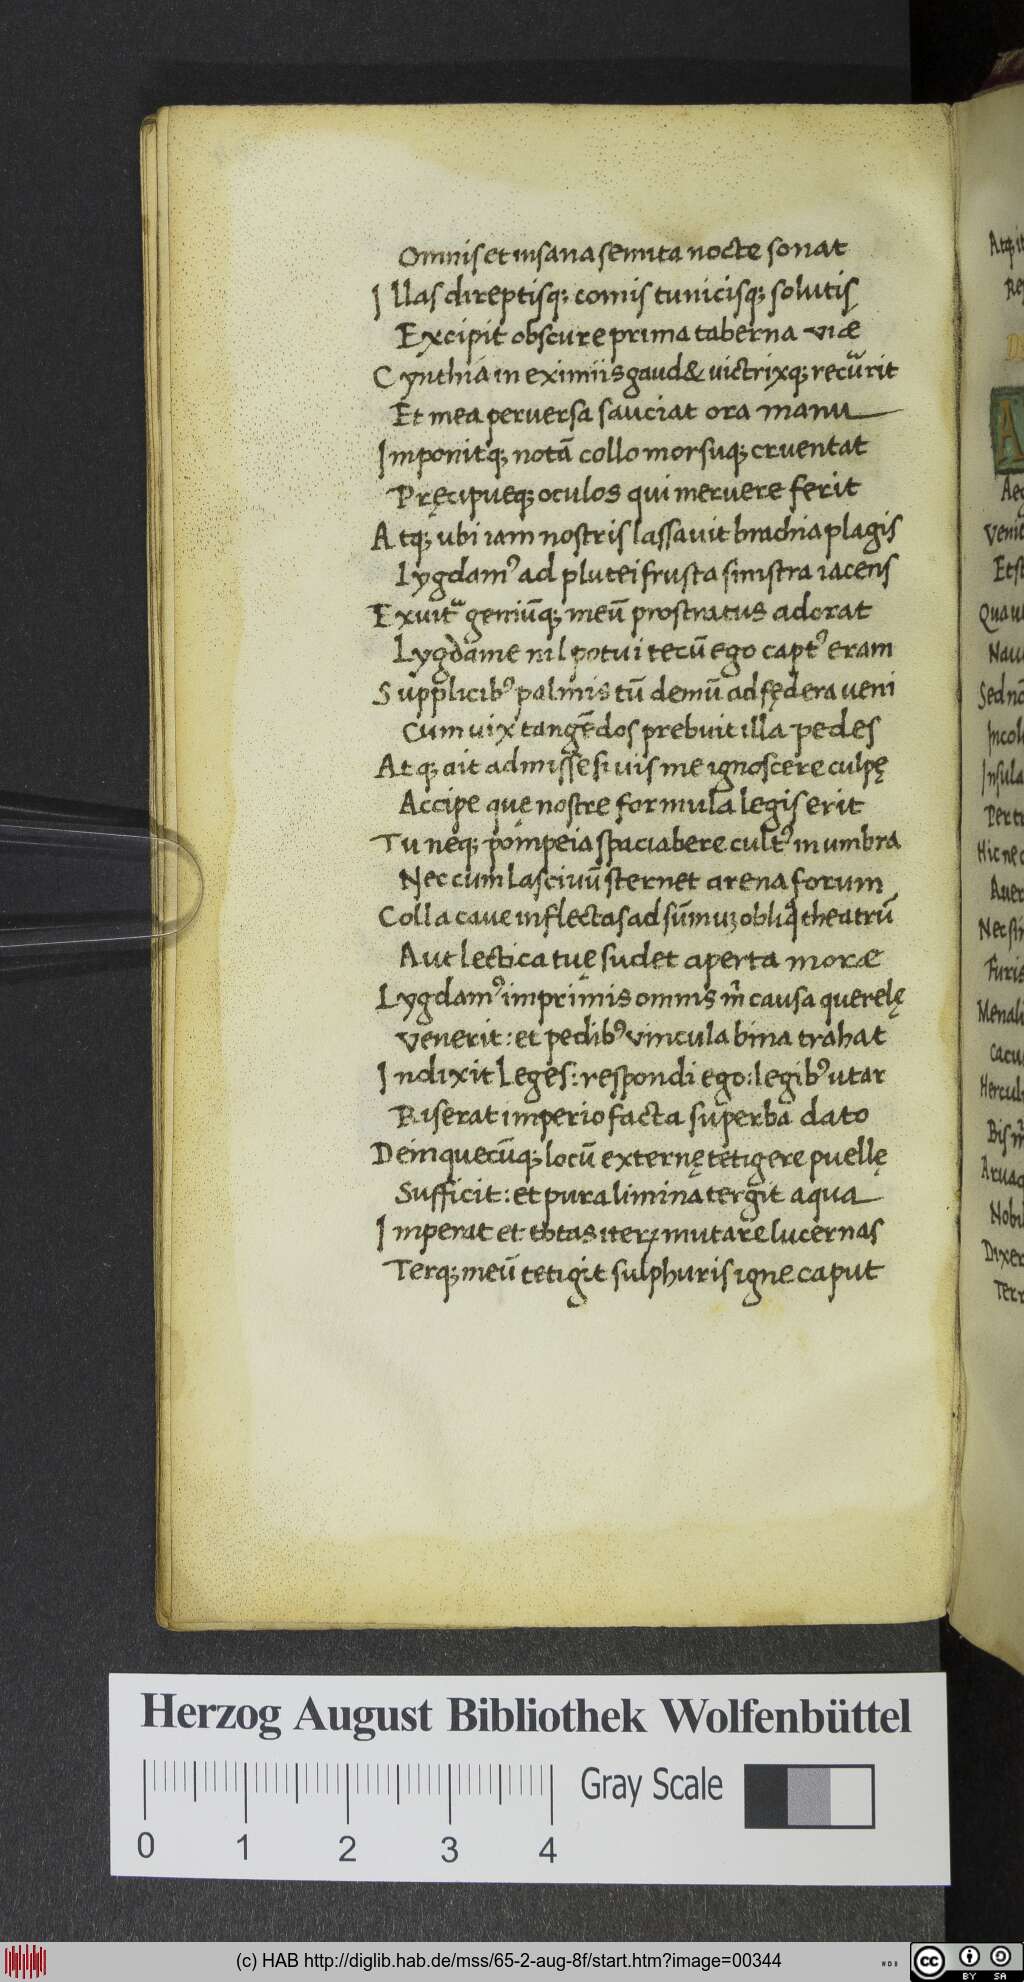 Omnis et insana semita nocte sonat
Illas direptisq; comis tunicisq; solutis
Excipit obscure prima taberna viæ
Cynthia in eximiis gaud& victrixq; recurit
Et mea perversa sauciat ora manu
Imponitq; notā collo morsuq; cruentat
Pręcipueq; oculos qui meruere ferit
Atq; ubi iam nostris lassauit brachia plagis
Lygdamꝰ ad plutei frusta sinistra iacens
Exuitͣ geniūq; meū prostratus adorat
Lygdame nil potui tecū ego captꝰ eram
Supplicibꝰ palmis tū demū ad fędera veni
Cum vix tangēdos prebuit illa pedes
Atq; ait admisse si vis me ignoscere culpę
Accipe quę nostre formula legis erit
Tu neq; pompeia spaciabere cultꝰ in umbra
Nec cum lascivū sternet arena forum
Colla cave inflectas ad sūmuꝫ obliqͣ theatrū
Aut lectica tuę sudet aperta moræ
Lygdamꝰ imprimis omnis m̄ causa querelę
Venerit: et pedibꝰ vincula bina trahat
Indixit leges: respondi ego: legibꝰ utar
Riserat imperio facta superba dato
Dein quecūq; locū externę tetigere puellę
Sufficit: et pura limina tergit aqua
Imperat et totas iterꝫ mutare lucernas
Terq; meū tetigit sulphuris igne caput
Atq; it
Venic
Etst
Quavi
Nau
Sed nō
Incol
Insula
Hic nec
Auer
Nec sin
Furis
Menali
Cacu
Hercul
Bis m̄
Nobi
Dixer
Terr
Herzog August Bibliothek Wolfenbüttel
Gray Scale
0 1 2 3 4
(c) HAB http://diglib.hab.de/mss/65-2-aug-8f/start.htm?image=00344
WDB
cc BY SA